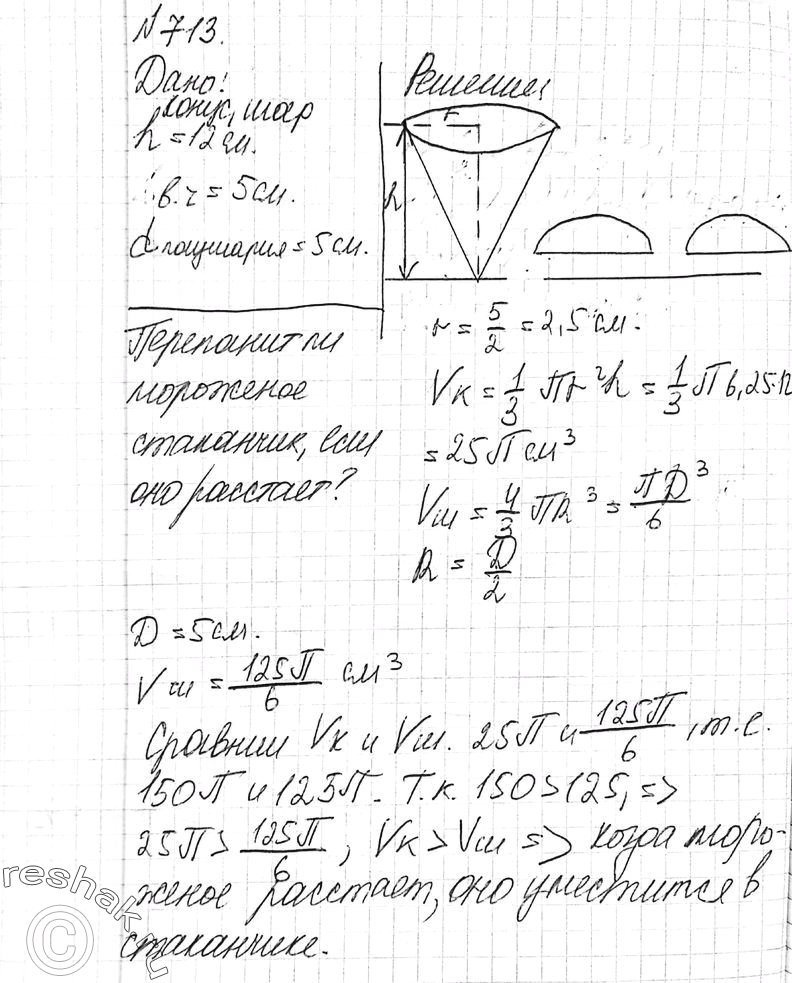 №713.
Дано:
конус, шар
h = 12 см.
в.ч = 5 см.
d полушария = 5 см.
Перепонит ли
мороженое
стаканчик, если
оно расстает?
Решение:
r
h
r = 5/2 = 2,5 см.
Vк = 1/3 Пr²h = 1/3 П 6,25·12
= 25П см³
Vш = 4/3 ПR³ = ПD³/6
R = D/2
D = 5 см.
Vш = 125П/6 см³
Сравним Vк и Vш. 25П и 125П/6, т.е.
150П и 125П. Т.к. 150 > 125, =>
25П > 125П/6, Vк > Vш => когда моро-
женое расстает, оно уместится в
стаканчике.
reshak.ru
©